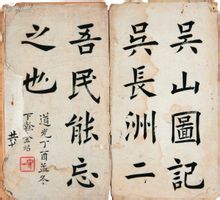 吳山圖記
吳長洲二
吾民能忘
之也
道光丁酉孟冬